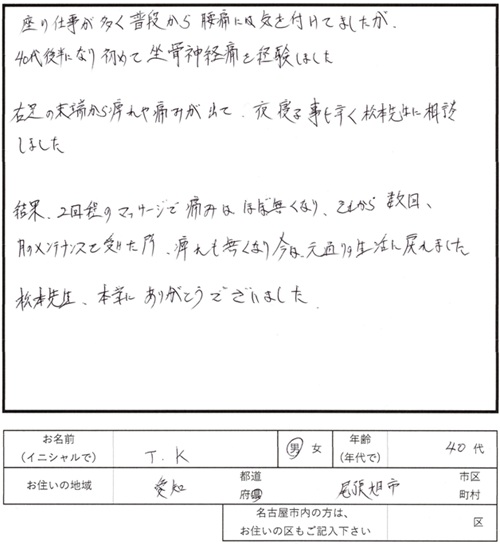 座り仕事が多く普段から腰痛には気を付けてましたが、
40代後半になり初めて坐骨神経痛を経験しました
右足の末端から痺れや痛みが出て、夜寝る事も辛く松本先生に相談
しました
結果、2回程のマッサージで痛みはほぼ無くなり、それから数回、
月1メンテナンスを受けた所、痺れも無くなり今は元通りの生活に戻れました
松本先生、本当にありがとうございました。
お名前
(イニシャルで) T.K 男 女 年齢
(年代で) 40 代
お住いの地域 愛知 都道
府県 尾張旭市 市区
町村
名古屋市内の方は、
お住いの区もご記入下さい 区